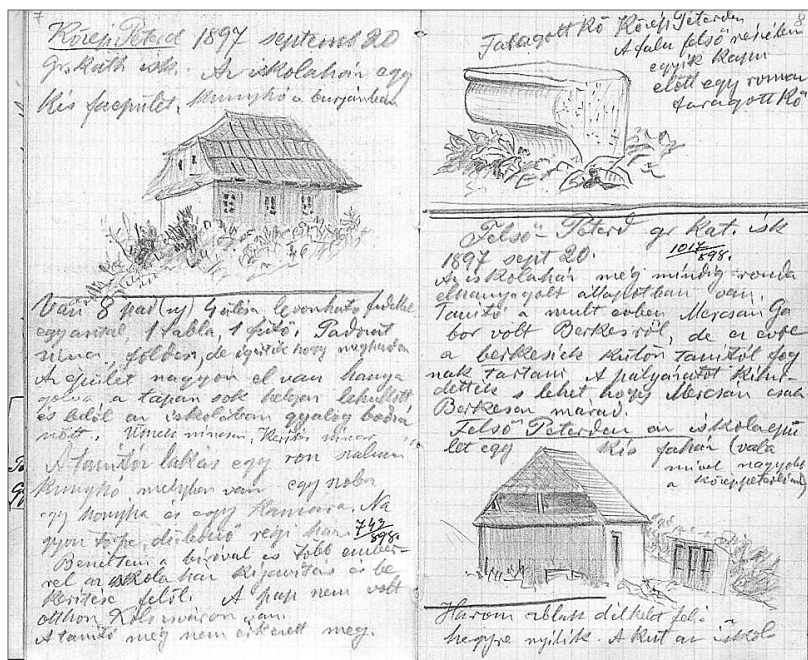 7
Közép Peterd 1897 septemb 20
gr. Kath isk. Az iskolaház egy
kis faépület, kunyhó a burjánban
Van 8 pad (uj) 4 ülés, levonható fedéllel
egy asztal, 1 tabla, 1 futó. Padozat
nincs, földes, de igérték hogy
Az épület nagyon el van hanya
golva, a tapasz sok helyen lehullott
és belől az iskolában gyalog bodza
nőtt. nincsen, Kerités nincs
A tanitói lakás egy
kunyhó melyben van egy szoba
egy konyha és egy Kamara. Na
gyon törpe, düledező régi ház. 742/898.
Beszéltem a biróval és több ember-
rel az iskola ház kijavitás és be
keritése felől. A pap nem volt
otthon Kolozsváron van.
A tanitó még nem érkezett meg.
8
Faragott Kő Közép Peterden
A falu felső részében
egyik kapu
előtt egy roman
faragott Kő
Felső Peterd gr Kat. isk
1897 sept 20. 1017/898.
Az iskolaház még mindig ronda
elhanyagolt állapotban van.
Tanitó a mult évben Mercsan Ga
bor volt Berkesről, de ez évbe
a berkesiek külön tanitót fog
nak tartani. A pályázatot kihir-
dették s lehet hogy Mercsan csak
Berkesen marad.
Felső Peterden az iskolaépü
let egy kis faház (vala
mivel nagyobb
a középpeterdinél)
Három ablak délkelet felé a
hegyre nyilik. A kut az iskol